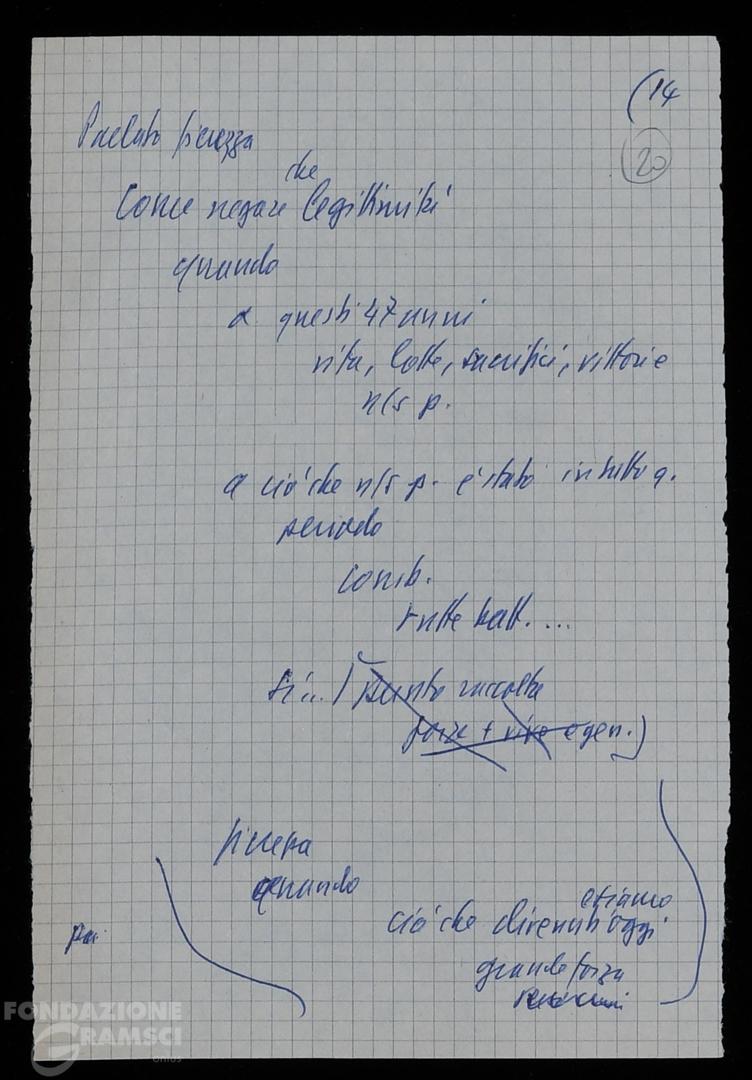 (14
20
Parlato fierezza
che
Come negare legittimità
quando
a questi 47 anni
vita, lotte, sacrifici, vittorie
n/s p.
a ciò che n/s p. è stato in tutto q.
periodo
comb.
tutte batt. ...
Sì... ( punto raccolta
forze + vive e gen.)
fierezza
quando
stiamo
ciò che divenuti oggi
grande forza
poi
FONDAZIONE
GRAMSCI
onlus